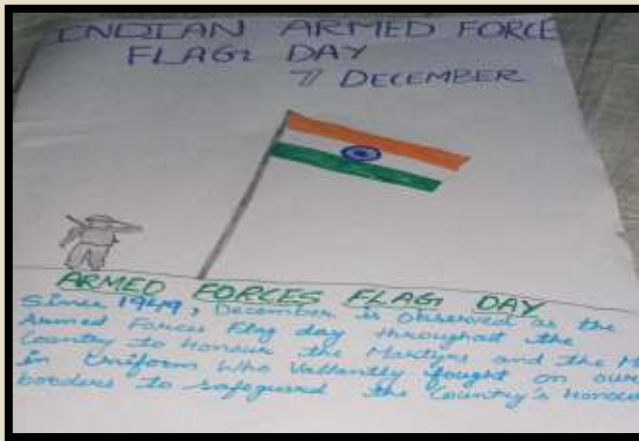 INDIAN ARMED FORCE
FLAG DAY
7 DECEMBER
ARMED FORCES FLAG DAY
Since 1949, December is observed as the
Armed Forces Flag day throughout the
Country to Honour the Martyrs and the M
in Uniform who Valiantly fought on our
borders to safeguard the Country's honour